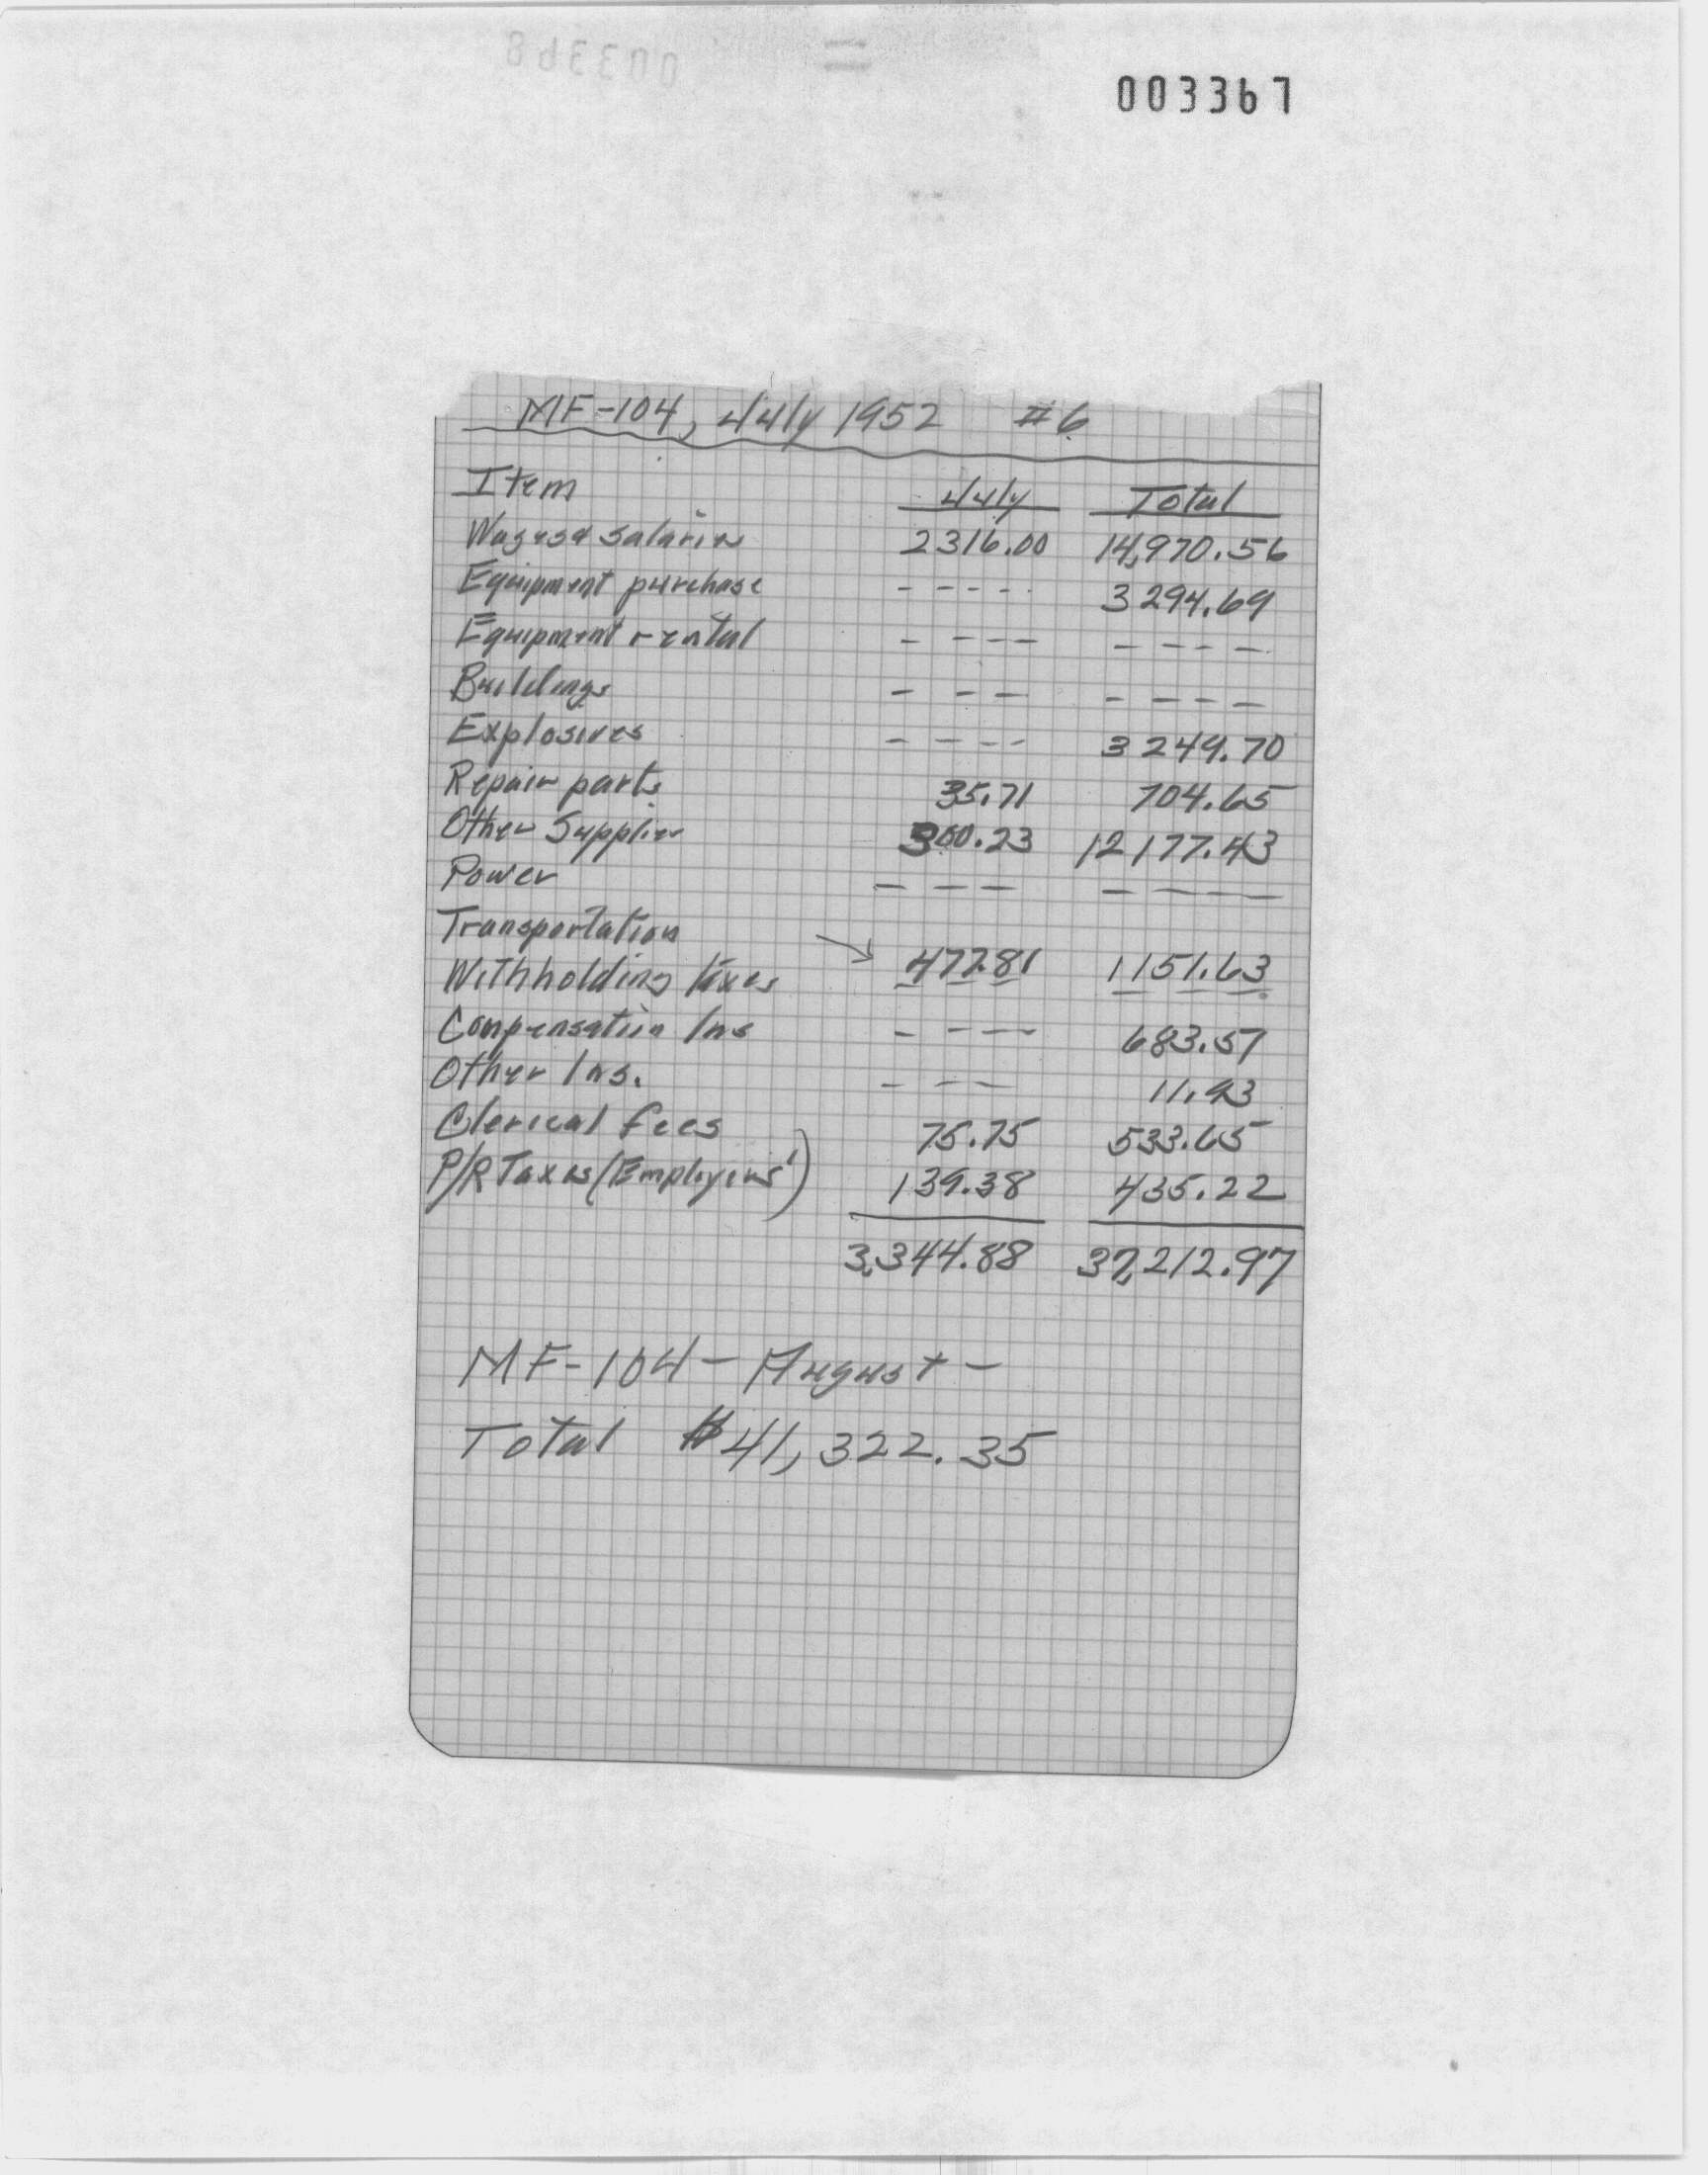 003367
MF-104, July 1952 #6
Item July Total
Wages & Salaries 2316.00 14,970.56
Equipment purchase - - - - - 3294.69
Equipment rental - - - - - - - -
Buildings - - - - - - -
Explosives - - - - 3249.70
Repair parts 35.71 704.65
Other Supplies 300.23 12177.43
Power - - - - - - -
Transportation
Withholding taxes → 477.81 1151.63
Compensation Ins - - - - 683.57
Other Ins. - - - 11.93
Clerical fees 75.75 533.65
P/R Taxes (Employers') 139.38 435.22
3,344.88 37,212.97
MF-104 - August -
Total $41,322.35